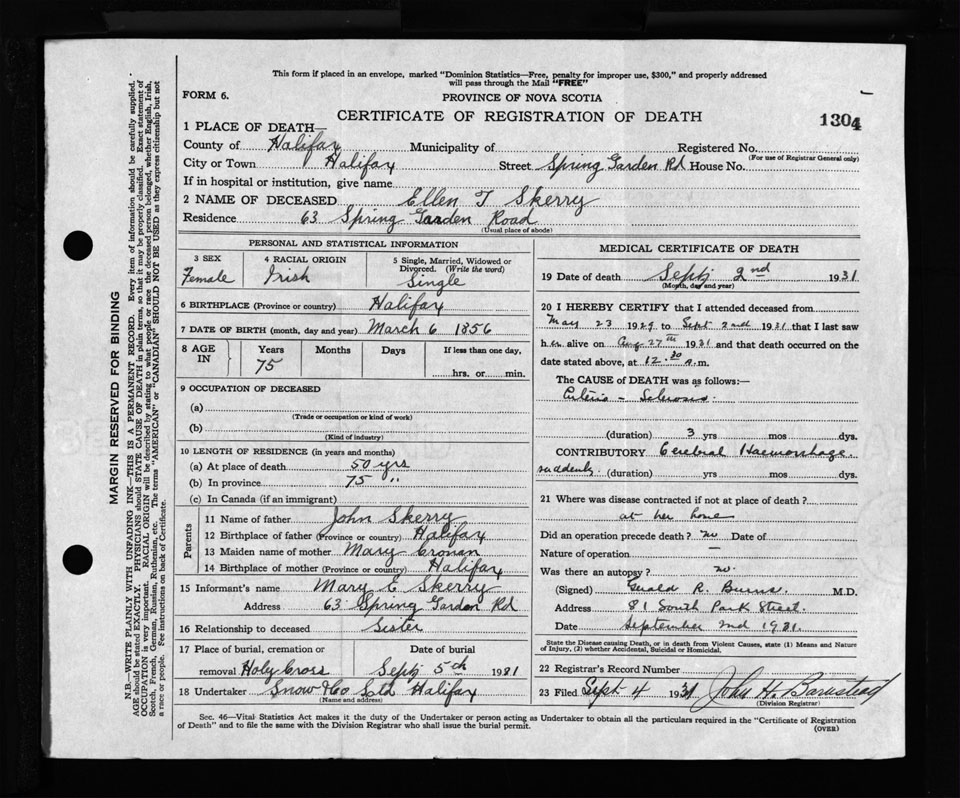 This form if placed in an envelope, marked "Dominion Statistics—Free, penalty for improper use, $300," and properly addressed
will pass through the Mail "FREE"
FORM 6.
PROVINCE OF NOVA SCOTIA
CERTIFICATE OF REGISTRATION OF DEATH
1304
1 PLACE OF DEATH—
County of Halifax Municipality of Registered No.
(For use of Registrar General only)
City or Town Halifax Street Spring Garden Rd House No.
If in hospital or institution, give name
2 NAME OF DECEASED Ellen T Skerry
Residence 63 Spring Garden Road
(Usual place of abode)
PERSONAL AND STATISTICAL INFORMATION
3 SEX 4 RACIAL ORIGIN 5 Single, Married, Widowed or
Divorced. (Write the word)
Female Irish Single
6 BIRTHPLACE (Province or country) Halifax
7 DATE OF BIRTH (month, day and year) March 6 1856
8 AGE IN Years Months Days If less than one day,
75 hrs. or min.
9 OCCUPATION OF DECEASED
(a)
(Trade or occupation or kind of work)
(b)
(Kind of industry)
10 LENGTH OF RESIDENCE (in years and months)
(a) At place of death 50 yrs
(b) In province 75 "
(c) In Canada (if an immigrant)
Parents
11 Name of father John Skerry
12 Birthplace of father (Province or country) Halifax
13 Maiden name of mother Mary Cronan
14 Birthplace of mother (Province or country) Halifax
15 Informant's name Mary E Skerry
Address 63 Spring Garden Rd
16 Relationship to deceased Sister
17 Place of burial, cremation or Date of burial
removal Holy Cross Sept 5th 1931
18 Undertaker Snow & Co Ltd Halifax
(Name and address)
MEDICAL CERTIFICATE OF DEATH
19 Date of death Sept 2nd 1931
(Month, day and year)
20 I HEREBY CERTIFY that I attended deceased from
May 23 1929 to Sept 2nd 1931 that I last saw
her alive on Aug 27th 1931 and that death occurred on the
date stated above, at 12.30 a.m.
The CAUSE OF DEATH was as follows:—
Arterio - Sclerosis
(duration) 3 yrs mos dys.
CONTRIBUTORY Cerebral Haemorrhage
suddenly (duration) yrs mos dys.
21 Where was disease contracted if not at place of death?
at her home
Did an operation precede death? no Date of
Nature of operation —
Was there an autopsy? no.
(Signed) Gerald R. Burns. M.D.
Address 81 South Park Street.
Date September 2nd 1931.
State the Disease causing Death, or in death from Violent Causes, state (1) Means and Nature
of Injury, (2) whether Accidental, Suicidal or Homicidal.
22 Registrar's Record Number
23 Filed Sept 4 1931 John H. Barnstead
(Division Registrar)
Sec. 46—Vital Statistics Act makes it the duty of the Undertaker or person acting as Undertaker to obtain all the particulars required in the "Certificate of Registration
of Death" and to file the same with the Division Registrar who shall issue the burial permit.
(OVER)
MARGIN RESERVED FOR BINDING
N.B.—WRITE PLAINLY WITH UNFADING INK—THIS IS A PERMANENT RECORD. Every item of information should be carefully supplied.
AGE should be stated EXACTLY. PHYSICIANS should STATE CAUSE OF DEATH in plain terms, so that it may be properly classified. Exact statement of
OCCUPATION is very important. RACIAL ORIGIN will be described by stating to what people or race the deceased person belonged, whether English, Irish,
Scotch, French, German, Russian, Ruthenian, etc. The terms "AMERICAN" or "CANADIAN" SHOULD NOT BE USED as they express citizenship but not
a race or people. See instructions on back of Certificate.